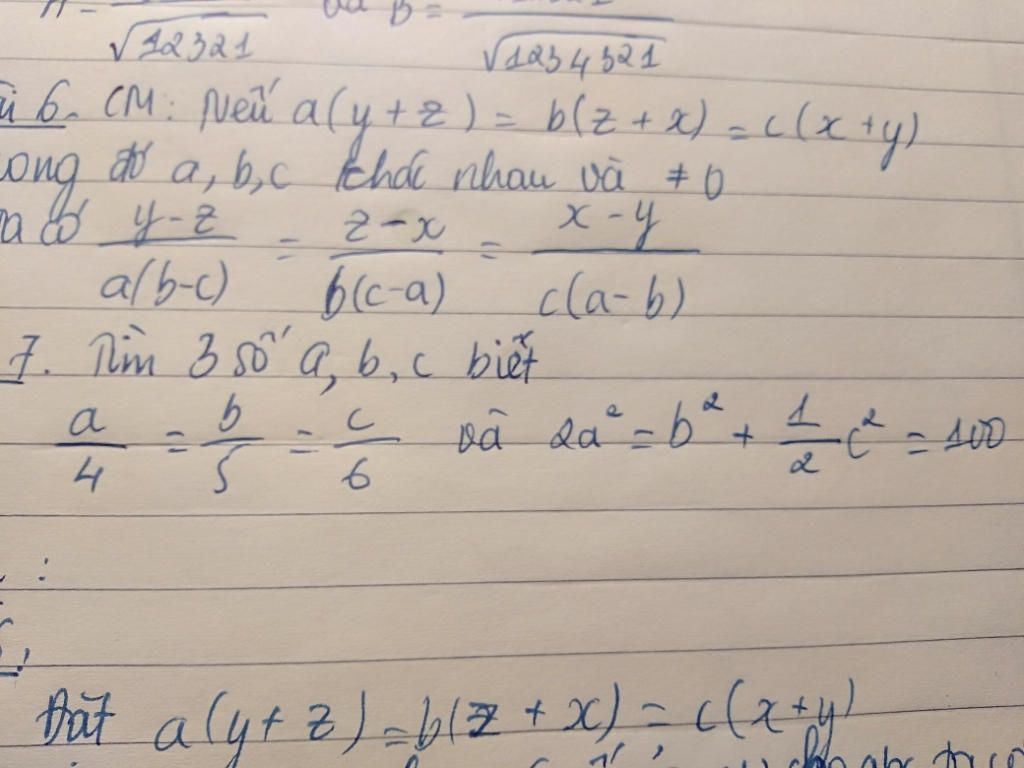 √12321 và B = √1234321
6. CM: Nếu a(y+z) = b(z+x) = c(x+y)
a, b, c khác nhau và ≠ 0
có y-z / a(b-c) = z-x / b(c-a) = x-y / c(a-b)
7. Tìm 3 số a, b, c biết
a/4 = b/5 = c/6 và 2a² = b² + 1/2 c² = 100
:
Đặt a(y+z) = b(z+x) = c(x+y)